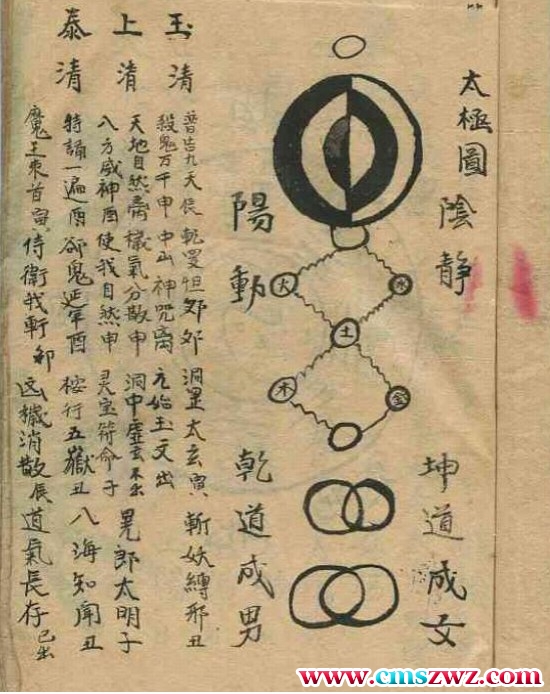 太極圖
陰静
陽動
火
水
土
木
金
坤道成女
乾道成男
玉清
上清
泰清
普告九天辰 乾罗怛 郊郊 洞罡太玄寅 斬妖縛邪丑
殺鬼万千申 中山神咒离 元始玉文出
天地自然 穢氣分散申 洞中虚玄 晃郎太明子
八方威神酉 使我自然申 灵宝符命子
特誦一遍酉 卻鬼延年酉 桉行五嶽丑 八海知聞丑
魔王束首寅 侍衛我軒卯 凶穢消散辰 道氣長存 已出
www.cmszwz.com